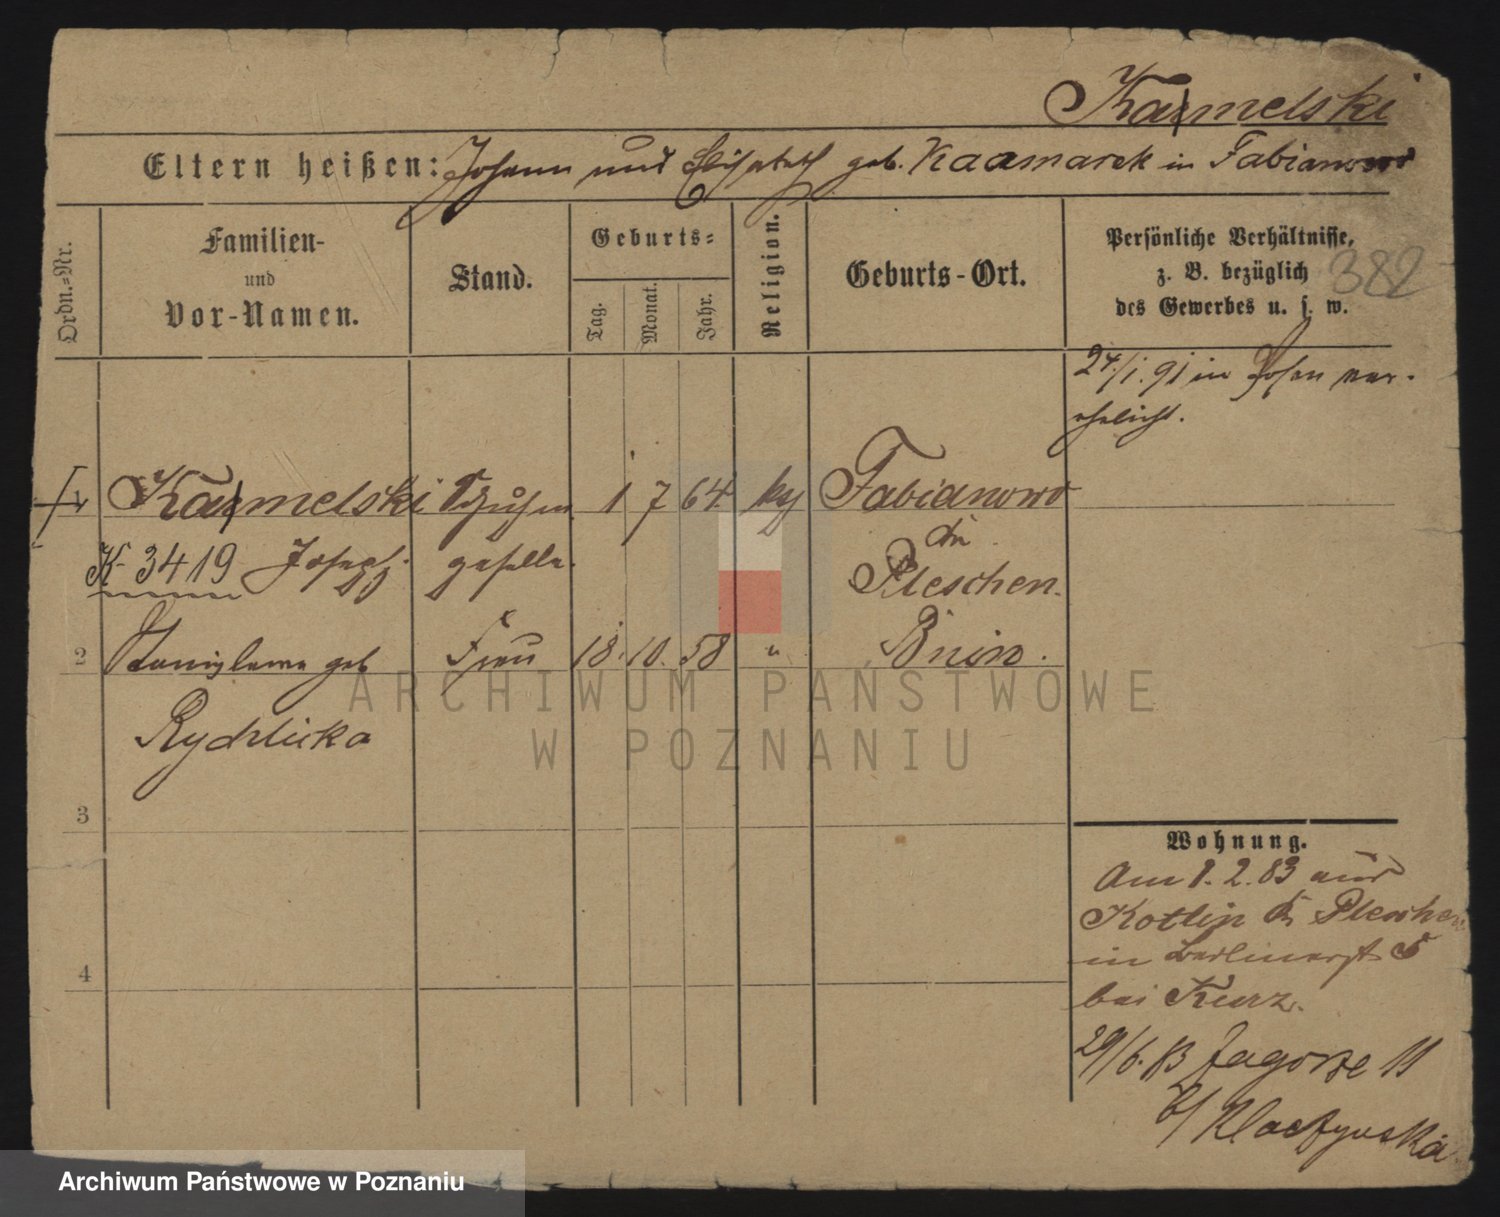 Karmelski
Eltern heißen: Johann und Elisabeth geb. Kaamarek in Fabianowo
Ordn.=Nr.
Familien-
und
Vor-Namen.
Stand.
Geburts=
Tag.
Monat.
Jahr.
Religion.
Geburts-Ort.
Persönliche Verhältnisse,
z. B. bezüglich
des Gewerbes u. s. w.
382
24./1. 91 in Posen ver-
ehelicht.
1 Karmelski Schuhm. 1 7 64. Fabianowo
K 3419 Joseph geselle. Pleschen.
2 Stanislawa geb Frau 18. 10. 58 " Bnin.
Rydzlicka
3
4
Wohnung.
Am 1. 2. 83 aus
Kotlin K Pleschen
in 5
bei Kurz.
29/6. 83 Zagorze 11
b/
ARCHIWUM PAŃSTWOWE
W POZNANIU
Archiwum Państwowe w Poznaniu